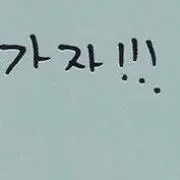 가자!!!